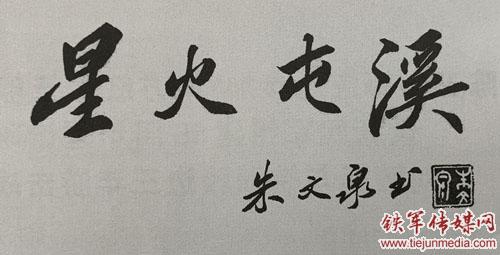 星火屯溪
朱文泉书
铁军传媒网
www.tiejunmedia.com